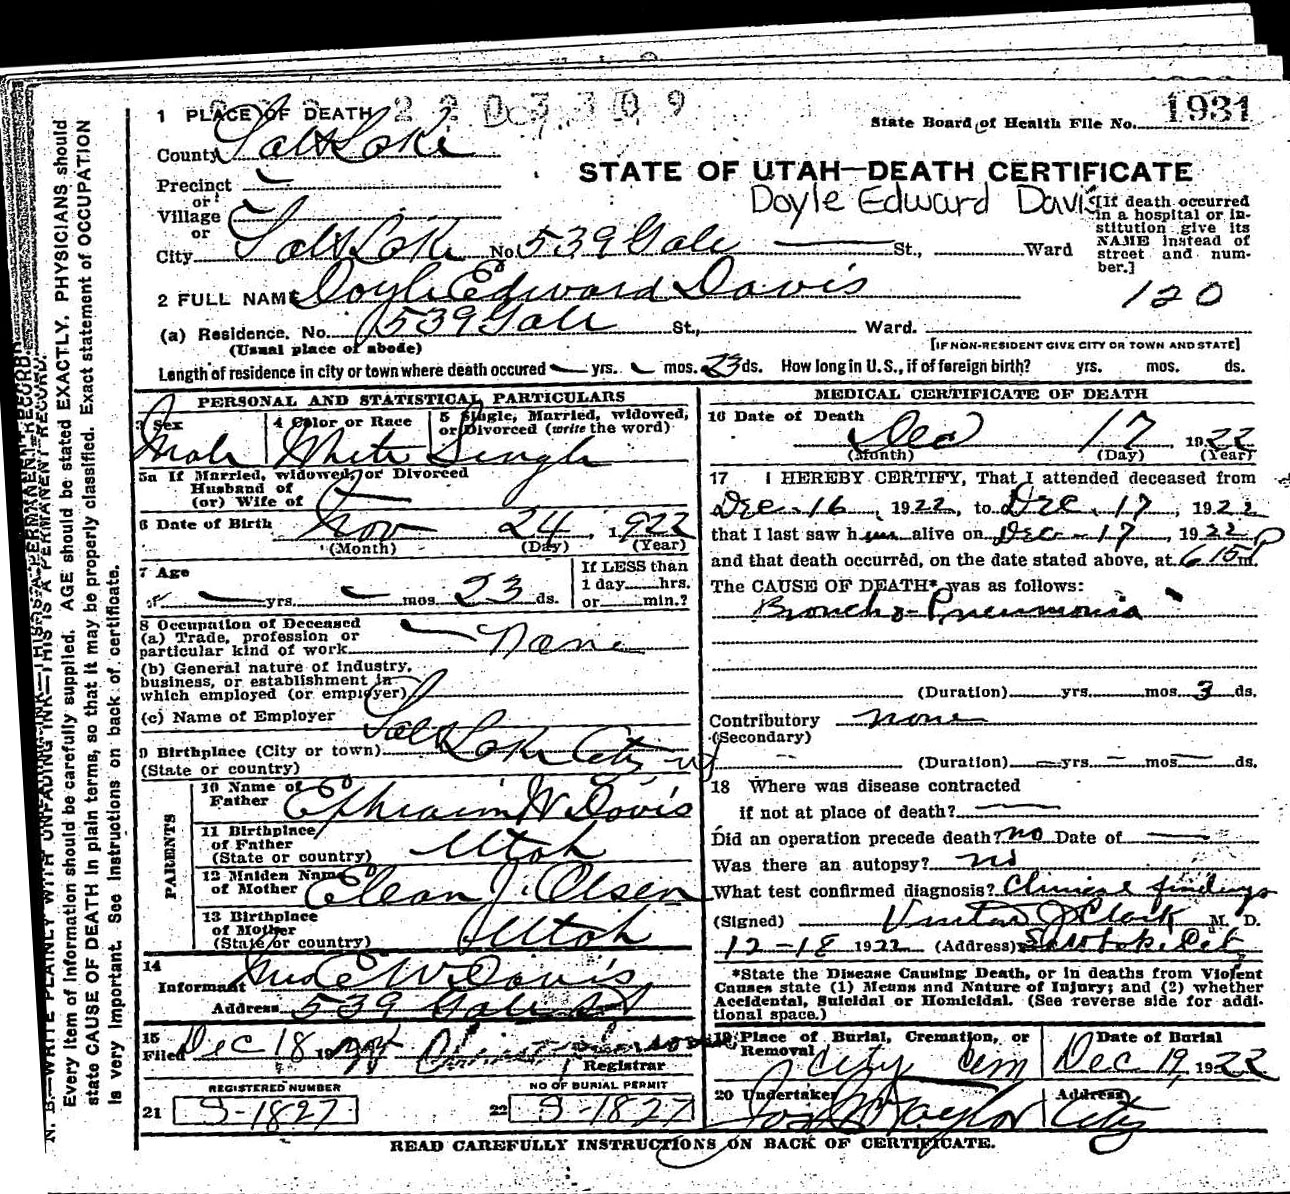 2203309
1931
1 PLACE OF DEATH
State Board of Health File No.
County Salt Lake
STATE OF UTAH—DEATH CERTIFICATE
Precinct
or
Village
or
Doyle Edward Davis
[If death occurred in a hospital or institution give its NAME instead of street and number.]
City Salt Lake No. 539 Gale St., Ward
2 FULL NAME Doyle Edward Davis
120
(a) Residence. No. 539 Gale St., Ward.
(Usual place of abode)
[IF NON-RESIDENT GIVE CITY OR TOWN AND STATE]
Length of residence in city or town where death occured yrs. mos. 23 ds. How long in U.S., if of foreign birth? yrs. mos. ds.
PERSONAL AND STATISTICAL PARTICULARS
3 Sex Male
4 Color or Race White
5 Single, Married, widowed, or Divorced (write the word) Single
5a If Married, widowed, or Divorced
Husband of
(or) Wife of
6 Date of Birth Nov 24, 1922
(Month) (Day) (Year)
7 Age
yrs. mos. 23 ds.
If LESS than
1 day hrs.
or min.?
8 Occupation of Deceased
(a) Trade, profession or
particular kind of work None
(b) General nature of Industry,
business, or establishment in
which employed (or employer)
(c) Name of Employer
9 Birthplace (City or town) Salt Lake City ut
(State or country)
PARENTS
10 Name of
Father Ephraim W Davis
11 Birthplace
of Father Utah
(State or country)
12 Maiden Name
of Mother Elean J. Olsen
13 Birthplace
of Mother Utah
(State or country)
14
Informant Mrs E W Davis
Address 539 Gale St
15
Filed Dec 18 19
Registrar
REGISTERED NUMBER
21 S-1827
NO OF BURIAL PERMIT
22 S-1827
MEDICAL CERTIFICATE OF DEATH
16 Date of Death
Dec 17 1922
(Month) (Day) (Year)
17 I HEREBY CERTIFY, That I attended deceased from
Dec-16, 1922, to Dec. 17, 1922
that I last saw him alive on Dec-17, 1922
and that death occurred, on the date stated above, at 6 15 P m.
The CAUSE OF DEATH* was as follows:
Broncho-Pneumonia
(Duration) yrs. mos. 3 ds.
Contributory none
(Secondary)
(Duration) yrs. mos. ds.
18 Where was disease contracted
if not at place of death?
Did an operation precede death? no Date of
Was there an autopsy? no
What test confirmed diagnosis? Clinical findings
(Signed) J Clark M. D.
12-18 1922 (Address)
*State the Disease Causing Death, or in deaths from Violent
Causes state (1) Means and Nature of Injury; and (2) whether
Accidental, Suicidal or Homicidal. (See reverse side for addi-
tional space.)
19 Place of Burial, Cremation, or
Removal City Cem
Date of Burial
Dec 19, 1922
20 Undertaker Taylor
Address City
READ CAREFULLY INSTRUCTIONS ON BACK OF CERTIFICATE.
N. B.—WRITE PLAINLY WITH UNFADING INK—THIS IS A PERMANENT RECORD.
Every item of information should be carefully supplied. AGE should be stated EXACTLY. PHYSICIANS should
state CAUSE OF DEATH in plain terms, so that it may be properly classified. Exact statement of OCCUPATION
is very important. See instructions on back of certificate.